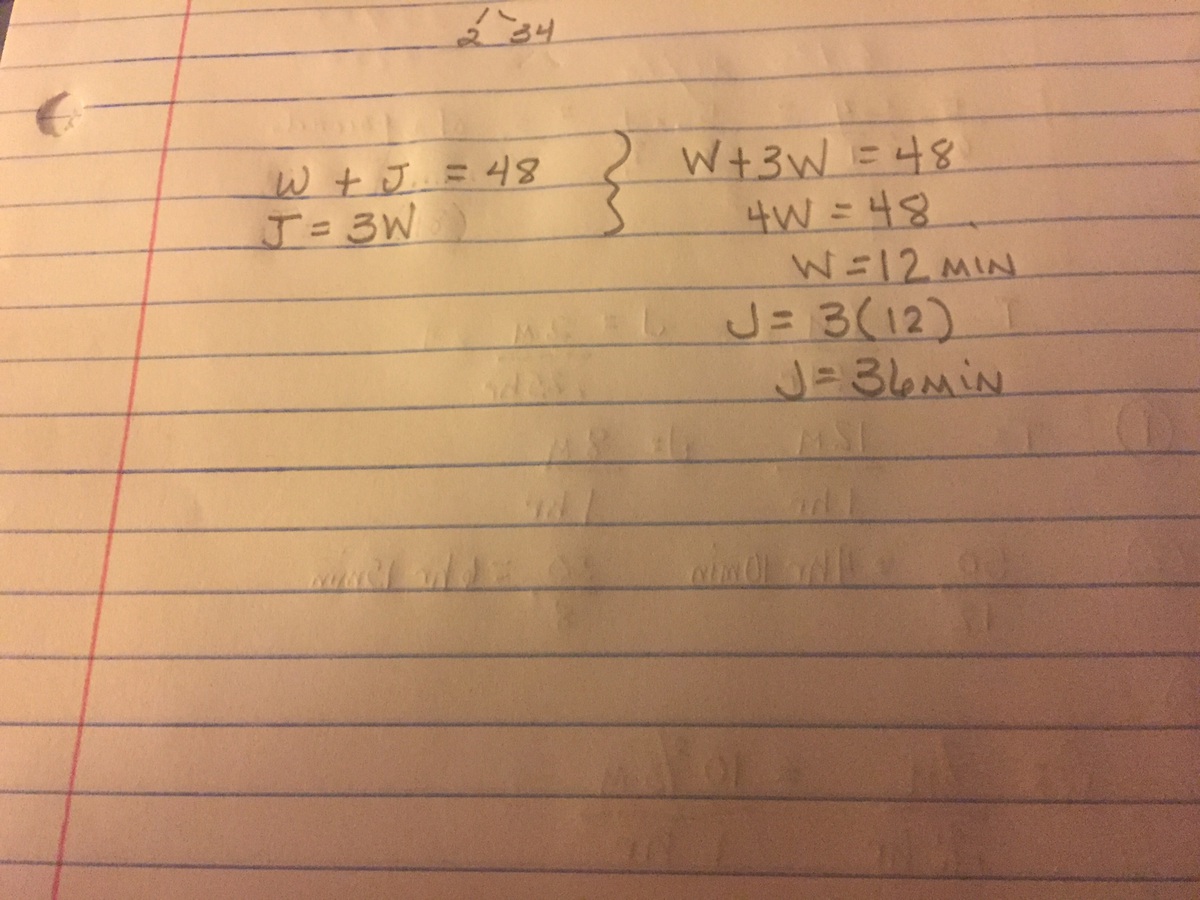 2 34
W + J = 48 } W+3W = 48
J = 3W 4W = 48
W = 12 MIN
J = 3(12)
J = 36 MIN